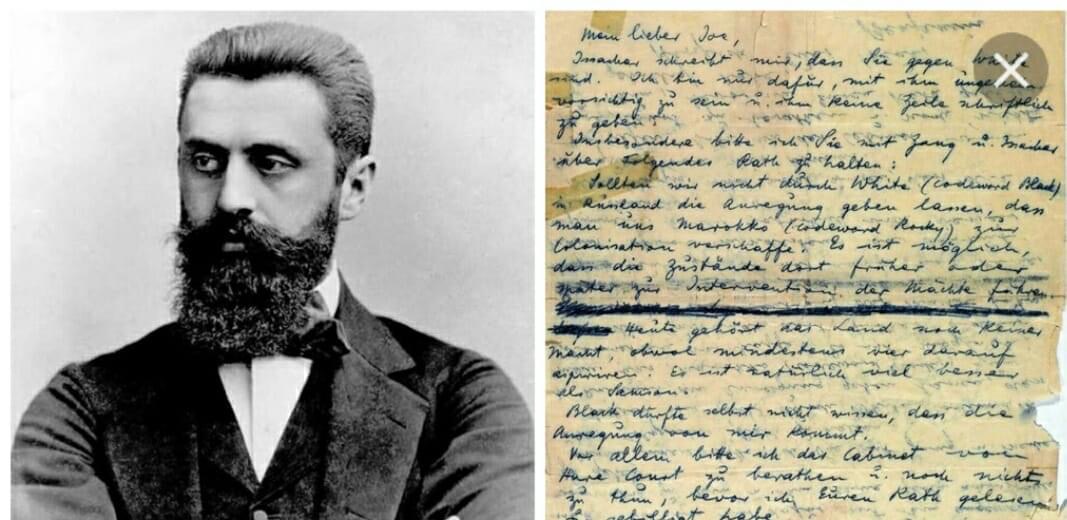 Mein lieber Joe,
Issachar schreibt mir, dass Sie gegen White
sind. Ich bin nur dafür, mit ihm ungeheuer
vorsichtig zu sein u. ihm keine Zeile schriftlich
zu geben.
Insbesondere bitte ich Sie mit Zang u. Issachar
über Folgendes Rath zu halten:
Sollten wir nicht durch White (codeword Black)
in England die Anregung geben lassen, dass
man uns Marokko (codeword Rocky) zur
Colonisation verschaffe. Es ist möglich,
dass die Zustände dort früher oder
später zur Intervention der Mächte führen
Heute gehört das Land noch keiner
Macht, obwol mindestens vier darauf
aspiriren. Es ist natürlich viel besser
als Samson.
Black dürfte selbst nicht wissen, dass die
Anregung von mir kommt.
Vor allem bitte ich das Cabinet von
Hare Court zu berathen u. noch nichts
zu thun, bevor ich Euren Rath gelesen
u. gebilligt habe.